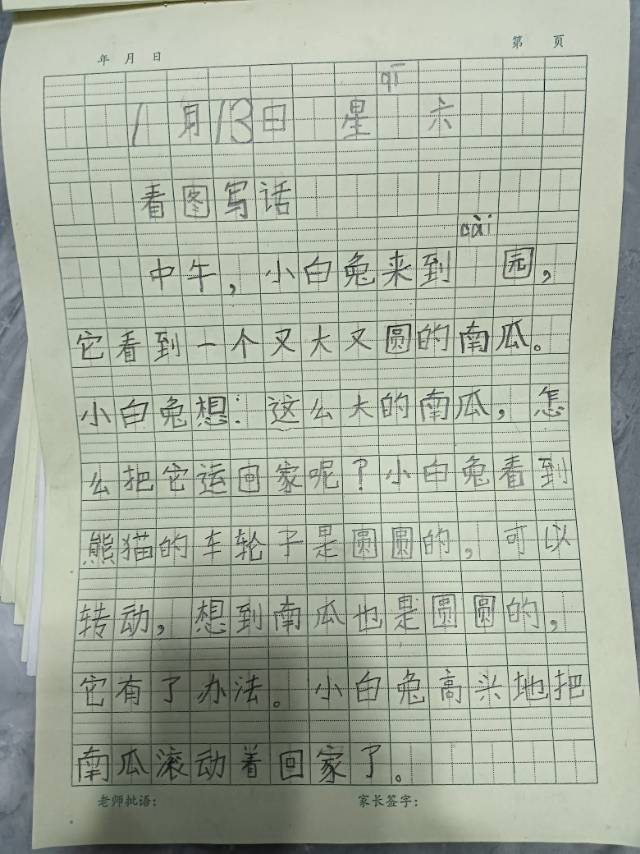 年 月 日 第 页
qī
1月13日 星 六
看图写话
cài
中午，小白兔来到 园，
它看到一个又大又圆的南瓜。
小白兔想：这么大的南瓜，怎
么把它运回家呢？小白兔看到
熊猫的车轮子是圆圆的，可以
转动，想到南瓜也是圆圆的，
它有了办法。小白兔高兴地把
南瓜滚动着回家了。
老师批语： 家长签字：